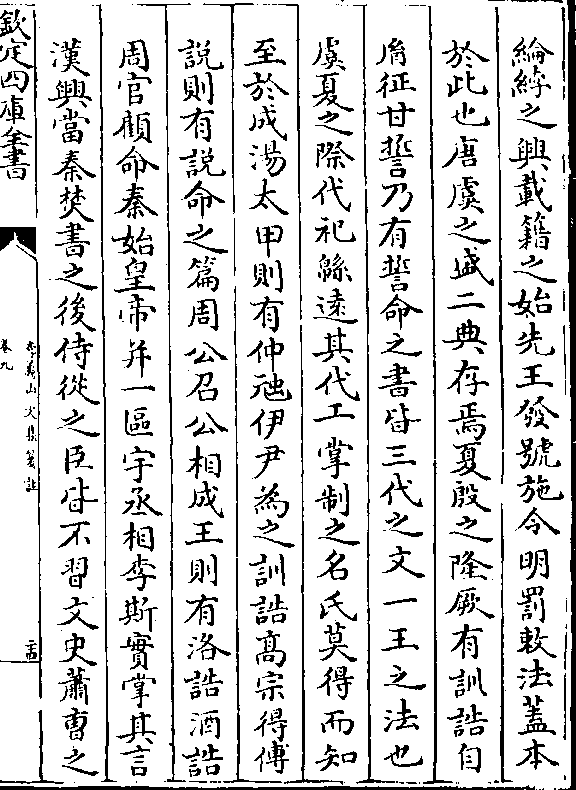 綸綍之興載籍之始先王發號施令明罰敕法蓋本
於此也唐虞之盛二典存焉夏殷之隆厥有訓誥自
㣧征甘誓乃有誓命之書皆三代之文一王之法也
虞夏之際代祀緜遠其代工掌制之名氏莫得而知
至於成湯太甲則有仲虺伊尹為之訓誥髙宗得傅
説則有説命之篇周公召公相成王則有洛誥酒誥
周官顧命秦始皇帝并一區宇丞相李斯實掌其言
漢興當秦焚書之後侍從之臣皆不習文史蕭曹之
欽定四庫全書
李義山文集箋註
卷九